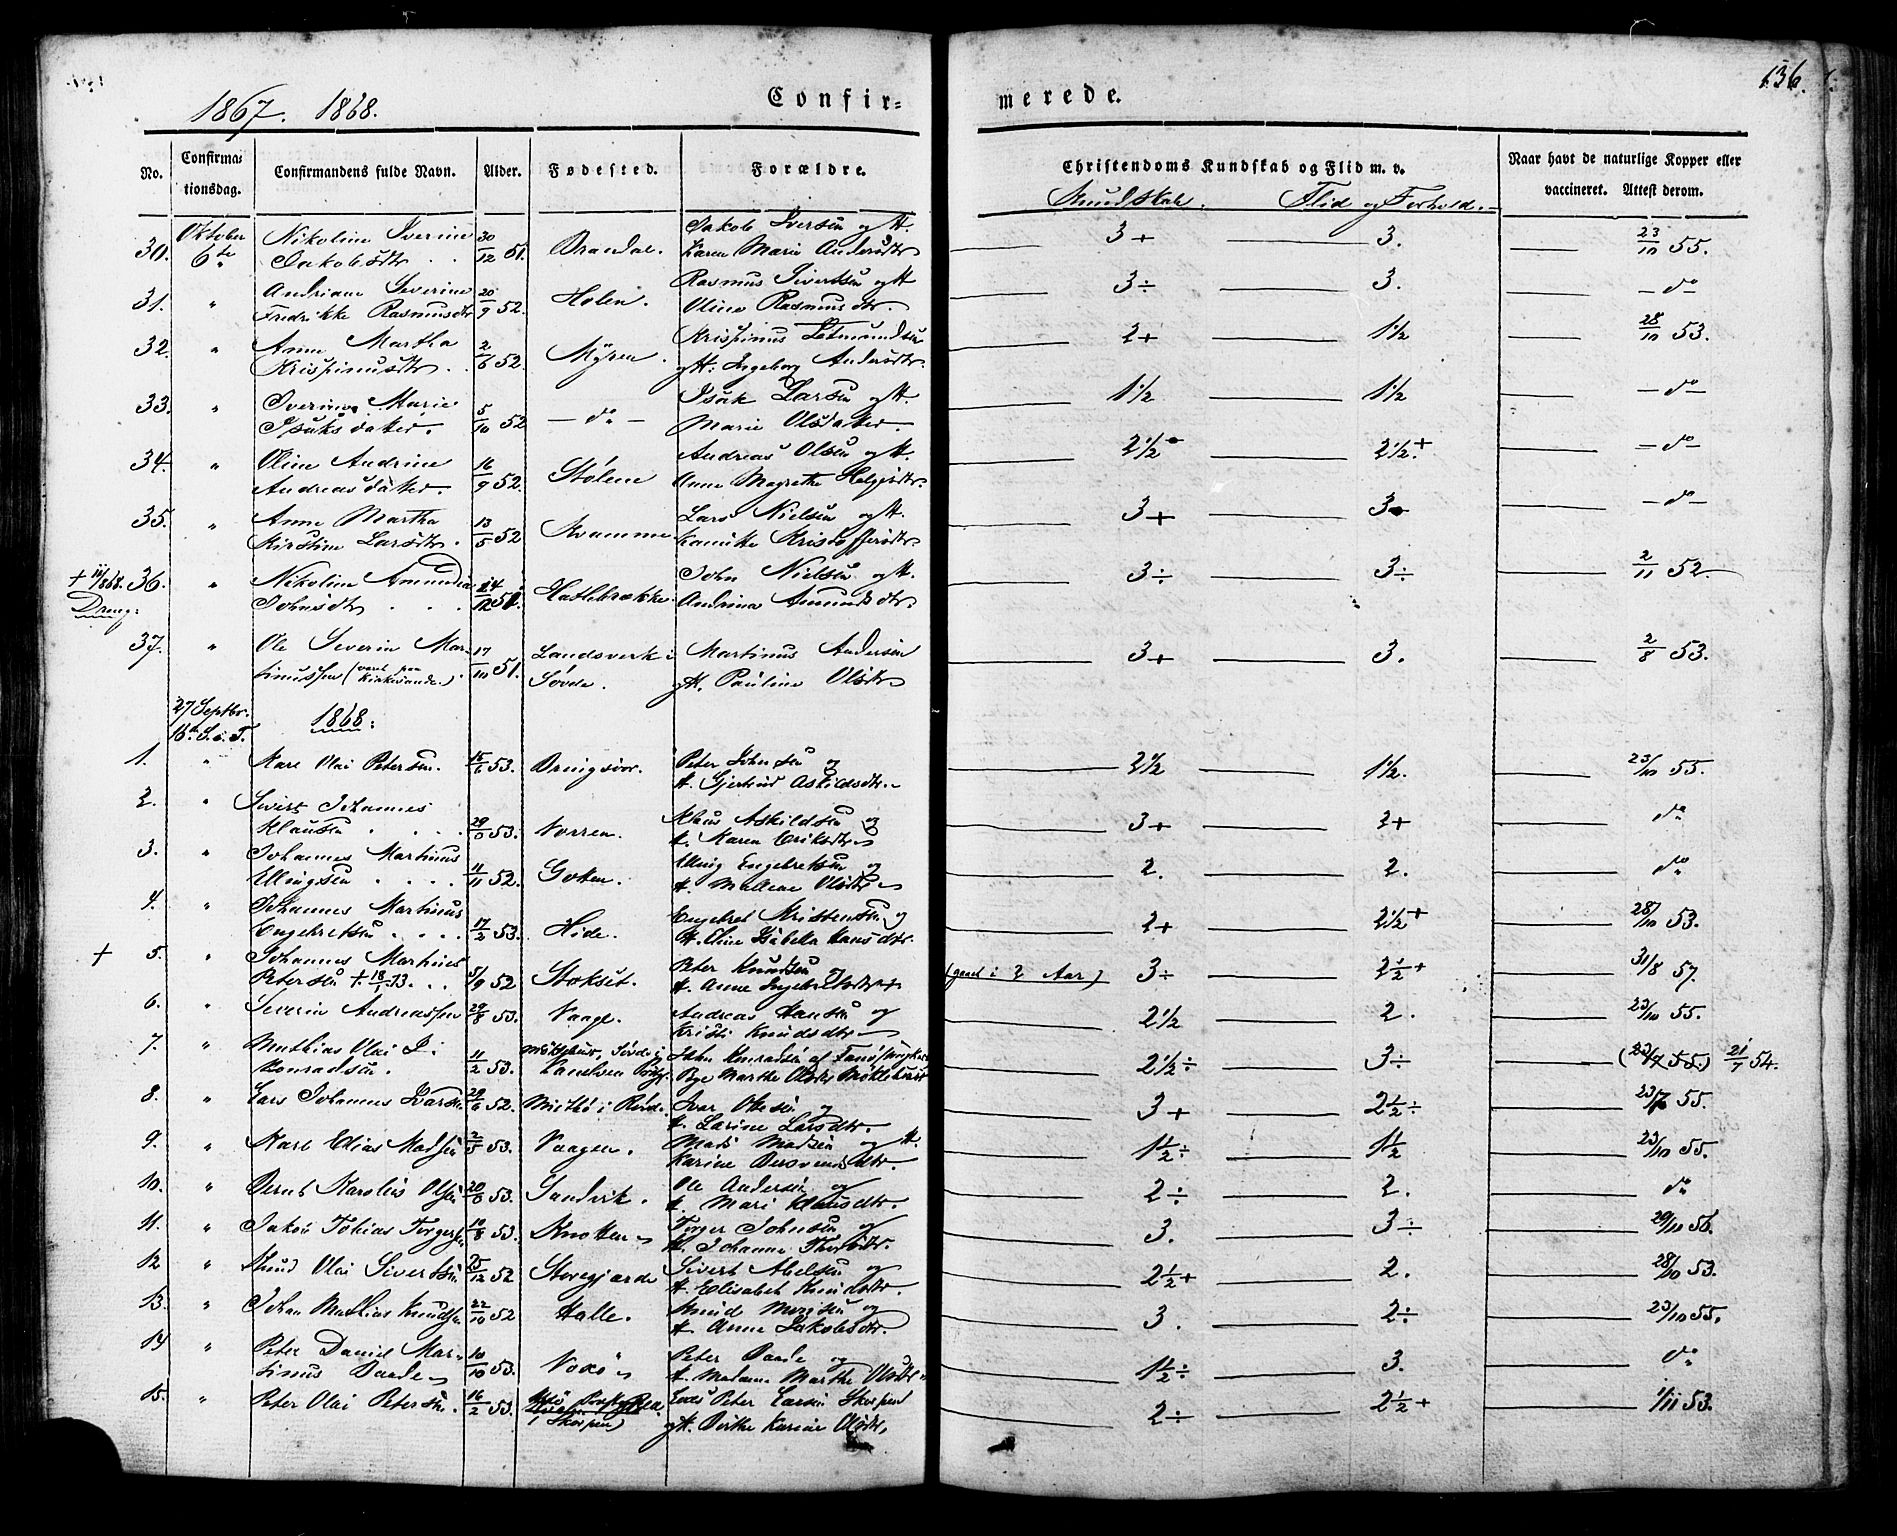 136.
1867. 1868.
Confir=
merede.
No.
Confirma=
tionsdag.
Confirmandens fulde Navn.
Alder.
Fødested.
Forældre.
Christendoms Kundskab og Flid m. v.
Kundskab. Flid og Forhold.
Naar havt de naturlige Kopper eller
vaccineret. Attest derom.
30. Oktober 6te Nikoline Iverine 30/12 51. Brandal. Jakob Iversen og H. 3+ 3. 23/10 55.
Jakobsdtr Karen Marie Andersdtr
31. " Andriane Severine 20/9 52. Holen. Rasmus Sivertsen og H 3÷ 3. - do -
Fredrikke Rasmusdtr Oline Rasmusdtr.
32. " Anne Martha 2/6 52. Myren. Krispinus 2+ 1½ 28/10 53.
Krispinusdtr og H. Ingeborg Andersdtr.
33. " Iverine Marie 5/10 52 - do - Isak Larsen og H. 1½ 1½ - do -
Isaksdatter. Marie Olsdatter.
34. " Oline Andrine 16/9 52. Stølene Andreas Olsen og H. 2½ 2½+ - do -
Andreasdatter. Anne Magrethe Helgesdtr.
35. " Anne Martha 13/5 52 Kvamme Lars Nielsen og H. 3+ 3 - do -
Kirstine Larsdtr. Kristoffersdtr.
+ 11/868. 36. " Nikoline Amundea 24/12 51. Hatlebrække John Nielsen og H. 3÷ 3÷ 2/11 52.
Johnsdtr Andrine Amundsdtr.
37. " Ole Severin Mar- 17/10 51. Landsverk i Martinus Andersen 3+ 3. 2/8 53.
tinussen Søvde. og H. Pauline Olsdtr
27 Septbr. 16de S. e. T.
1868:
1. " Karl Olai Petersen. 15/6 53. Dringsvor. Peter Johnsen og 2½ 1½. 23/10 55.
H. Gjertrud Askildsdtr.
2. " Sivert Johannes 53. Norren. Klaus Askildsen og 3+ 2+ do
Klausen H. Maren Eriksdtr
3. " Johannes Martinus 11/11 52. Goten. Elling Engebretsen og 2. 2. do
Ellingsen H. Mallene Olsdtr
4. " Johannes Martinus 17/2 53. Hide. Engebret Kristensen og 2+ 2½+ 28/10 53.
Engebretsen H. Eline Isabella Hansdtr.
+ 5. " Johannes Martinus 5/9 52 Stokset. Peter Knudsen og (gaaet i 2 Aar) 3÷ 2½+ 31/8 57.
Petersen H. Anne Ingebretsdtr
6. " Severin Andreassen 29/8 53. Vaage. Andreas Hansen og 2½ 2. 23/10 55.
Kristi Knudsdtr
7. " Mathias Olai J. 11/2 53. John Konradsen af 2½÷ 3÷ (23/7 55.) 21/7 54.
Konradsen. Marthe Olsdtr
8. " Lars Johannes Ivarsen 52. i Ivar og 3+ 2½÷ 55.
H. Larine Larsdtr.
9. " Karl Elias Madsen 2/5 53. Vaagen. Mads Madsen og H. 1½÷ 1½ 23/10 55.
Karine
10. " Bernt Karolius Olsen 53. Sandvik. Ole Andersen og 2÷ 2. do
H. Mari Klausdtr.
11. " Jakob Tobias Torgersen 10/8 53. Knotten Torger Johnsen og 3. 3÷ 29/10 56.
H. Johanne
12 " Knud Olai Sivertsen 25/12 52 Storegjærde Sivert Abelsen og 2½+ 2. 28/10 53.
H. Elisabet Knudsdtr.
13. " Johan Mathias Knudsen 22/10 52 Halle. Knud og 3. 2÷ 23/10 55.
H. Anne Jakobsdtr.
14 " Peter Daniel Mar- 10/10 53. Peter Daade og 1½÷ 3. do
tinus Daade H. Marthe
15. " Peter Olai Petersen. 16/2 53. Peter Larsen Skorpen 2÷ 2½+ 1/11 53.
(Skorpen) og H. Berthe Karine Olsdtr,